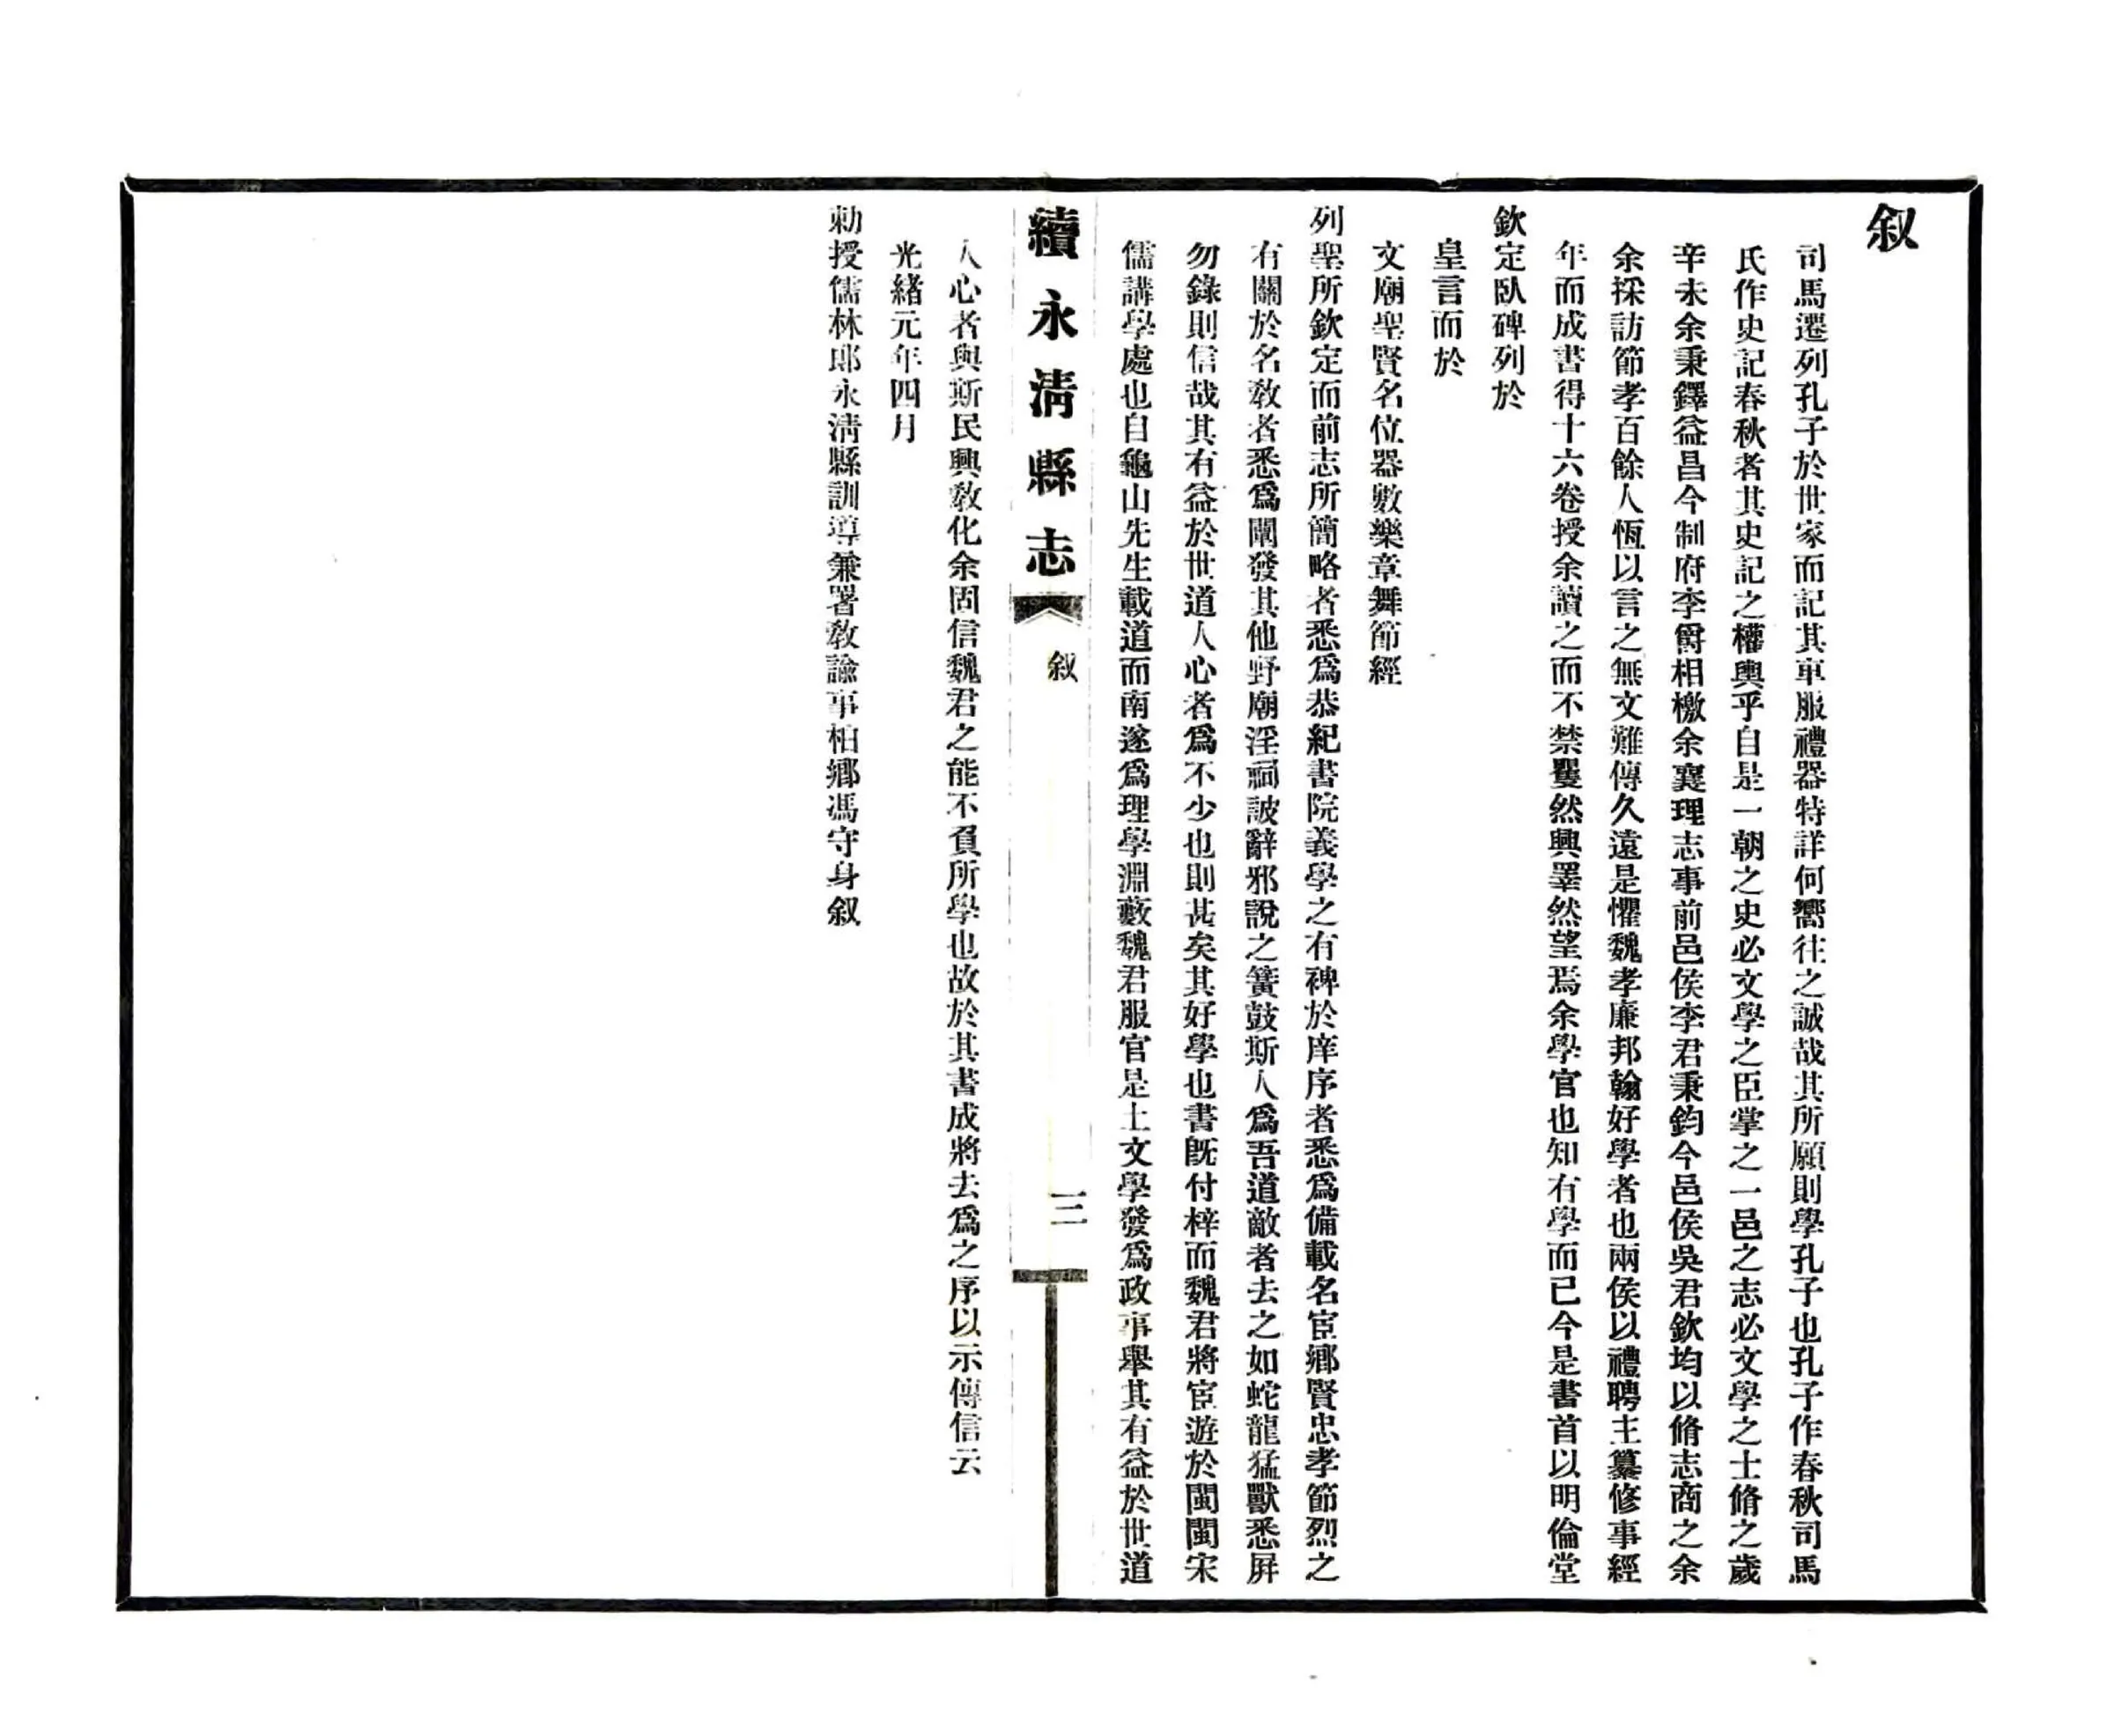 叙
司馬遷列孔子於世家而記其車服禮器特詳何嚮往之誠哉其所願則學孔子也孔子作春秋司馬
氏作史記春秋者其史記之權輿乎自是一朝之史必文學之臣掌之一邑之志必文學之士脩之歲
辛未余秉鐸益昌今制府李爵相檄余襄理志事前邑侯李君秉鈞今邑侯吳君欽均以脩志商之余
余採訪節孝百餘人恆以言之無文難傳久遠是懼魏孝廉邦翰好學者也兩侯以禮聘主纂修事經
年而成書得十六卷授余讀之而不禁矍然興睪然望焉余學官也知有學而已今是書首以明倫堂
欽定臥碑列於
皇言而於
文廟聖賢名位器數樂章舞節經
列聖所欽定而前志所簡略者悉爲恭紀書院義學之有裨於庠序者悉爲備載名宦鄉賢忠孝節烈之
有關於名敎者悉爲闡發其他野廟淫祠詖辭邪說之簧鼓斯人爲吾道敵者去之如蛇龍猛獸悉屏
勿錄則信哉其有益於世道人心者爲不少也則甚矣其好學也書旣付梓而魏君將宦遊於閩閩宋
儒講學處也自龜山先生載道而南遂爲理學淵藪魏君服官是土文學發爲政事舉其有益於世道
續永淸縣志
叙
三
人心者與斯民興敎化余固信魏君之能不負所學也故於其書成將去爲之序以示傳信云
光緒元年四月
勅授儒林郎永淸縣訓導兼署敎諭事柏鄉馮守身叙